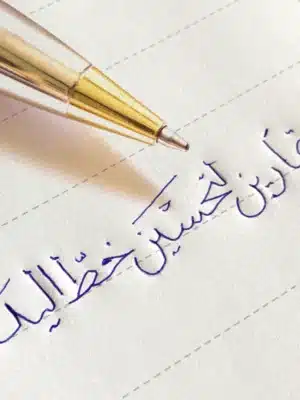 تمارين لتحسين خطّ اليد